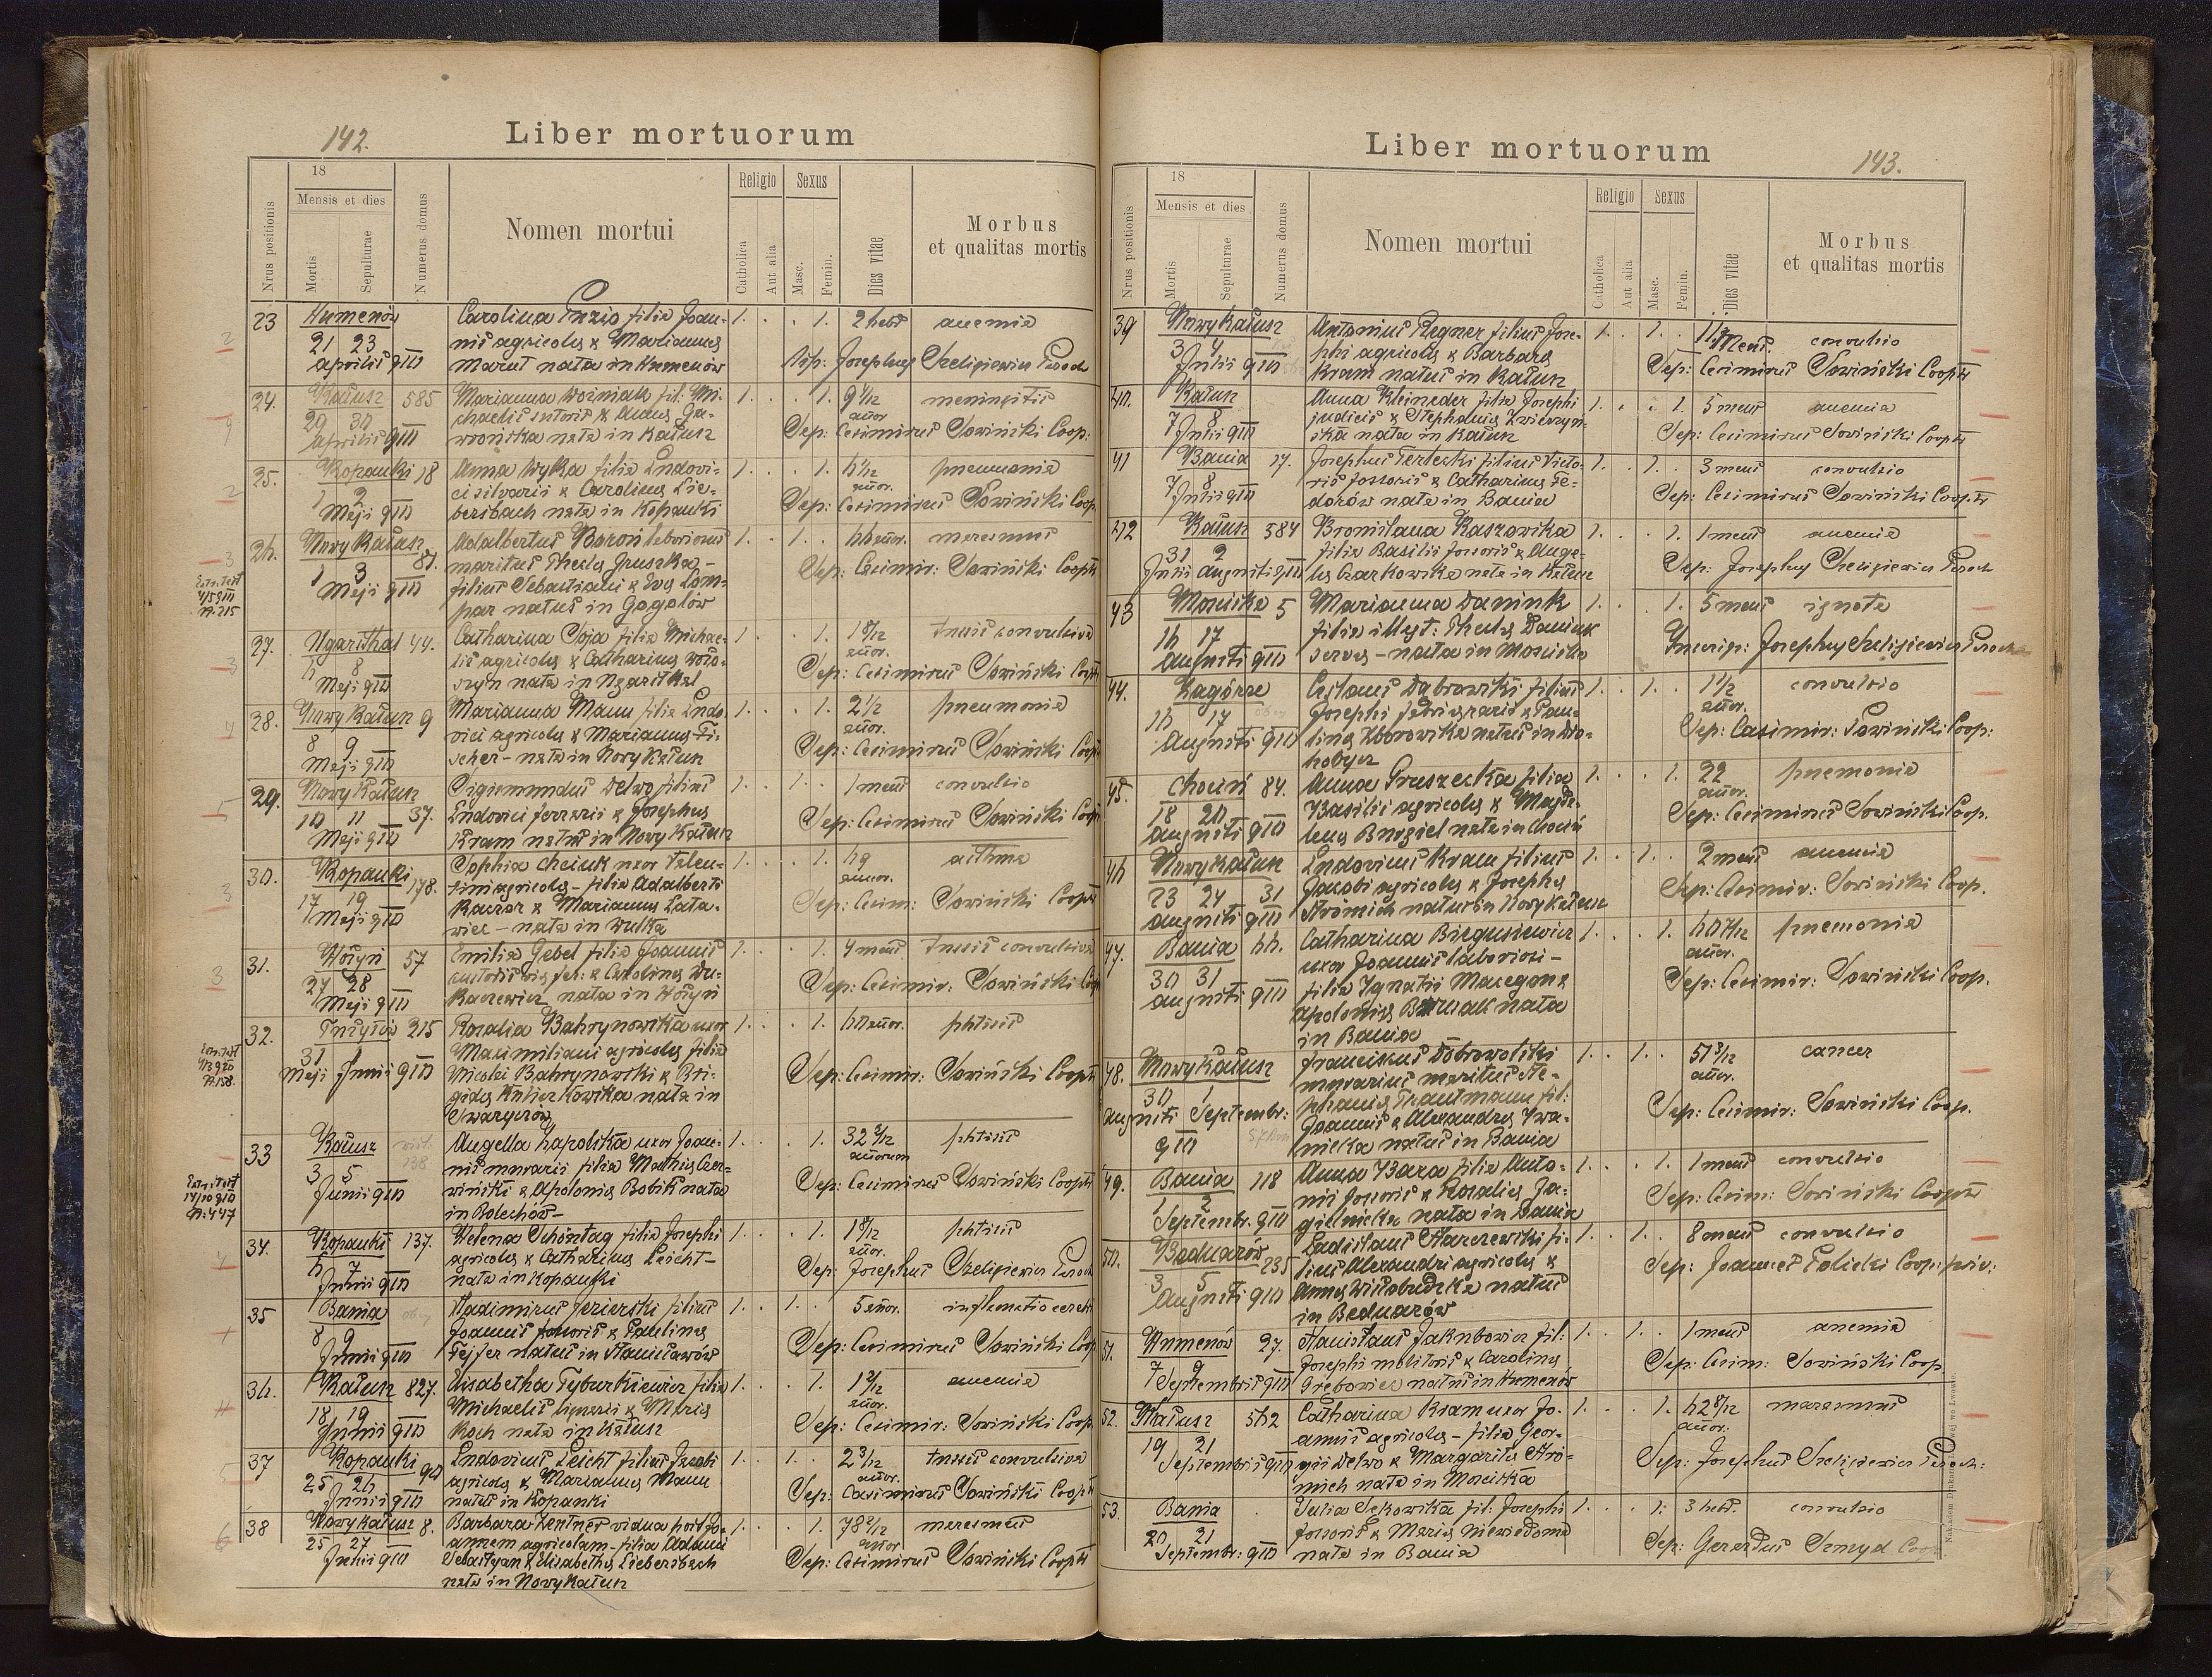 142.
Liber mortuorum
18
Mensis et dies
Religio
Sexus
Nrus positionis
Mortis
Sepulturae
Numerus domus
Nomen mortui
Catholica
Aut alia
Masc.
Femin.
Dies vitae
Morbus
et qualitas mortis
23 Humenów Carolina filia Joan- 1. 1. 2 hebd anemia
21 23 nis agricolae & Mariannae
aprilis 910 Marut nata in Humenów Sep: Josephus Szeligiewicz Paroch
24. Kałusz 585 Marianna Woźniak fil: Mi- 1. 1. 9 1/12 meningitis
29 30 chaelis sutoris & Annae Ga- annor
aprilis 910 wrońska nata in Kałusz Sep: Casimirus Sowiński Coop:
25. Kopanki 18 Anna Wyka filia Ludovi- 1. 1. 6 1/12 pneumonia
1 2 ci silvarii & Carolinae Lie- annor.
Maji 910 bersbach nata in Kopanki Sep: Casimirus Sowiński Coop
26. Nowy Kałusz 81. Adalbertus Boroń laboriosus 1. 1. 66 annor. marasmus
1 3 maritus Theclae Gruszka -
Maji 910 filius Sebastiani & Evae Lam- Sep: Casimir: Sowiński Coop
par natus in Gogolów
27. Ugarsthal 44. Catharina Soja filia Michae- 1. 1. 1 8/12 tussis convulsiva
6 8 lis agricolae & Catharinae Woło- annor.
Maji 910 szyn nata in Ugarsthal Sep: Casimirus Sowiński Coop
28. Nowy Kałusz 9 Marianna Mann filia Ludo- 1. 1. 2 1/2 pneumonia
8 9 vici agricolae & Mariannae Fi- annor.
Maji 910 scher - nata in Nowy Kałusz Sep: Casimirus Sowiński Coop
29. Nowy Kałusz 37. Sigismundus Delwo filius 1. 1. 1 mens convulsio
10 11 Ludovici ferrarii & Josephae
Maji 910 Kram natus in Nowy Kałusz Sep: Casimirus Sowiński Coop
30. Kopanki 178. Sophia uxor Valen- 1. 1. 69 asthma
17 19 tini agricolae - filia Adalberti annor.
Maji 910 Kaczor & Mariannae Lata- Sep: Casim: Sowiński Coop
wiec - nata in Wulka
31. Hołyń 57 Emilia Gebel filia Joannis 1. 1. 4 mens tussis convulsiva
27 28 custodis & Carolinae Du-
Maji 910 kaczewicz nata in Hołyń Sep: Casimir: Sowiński Coop
32. 215 Rosalia Bahrynowska uxor 1. 1. 60 annor. phtisis
31 1 Maximiliani agricolae filia
Maji Junii 910 Nicolai Bahrynowski & Bri- Sep: Casimir: Sowiński Coop
gidae nata in
33 Kałusz Angella Łapolska uxor Joan- 1. 1. 32 2/12 phtisis
3 5 nis murarii filia Mathiae Czer- annorum
Junii 910 wiński & Apoloniae Bobik nata Sep: Casimirus Sowiński Coop
in Bolechów -
34. Kopanki 137. Helena Schöntag filia Josephi 1. 1. 1 8/12 phtisis
6 7 agricolae & Catharinae Leicht - annor.
Junii 910 nata in Kopanki Sep: Josephus Szeligiewicz Paroch
35 Bania Vladimirus Jezierski filius 1. 1. 5 annor. inflamatio cerebri
8 9 Joannis fossoris & Paulinae
Junii 910 Fejfer natus in Stanisławów Sep: Casimirus Sowiński Coop
36. Kałusz 827. Elisabetha Tyburkiewicz filia 1. 1. 1 2/12 anemia
18 19 Michaelis lignarii & Mariae annor.
Junii 910 Koch nata in Kałusz Sep: Casimir: Sowiński Coop.
37 Kopanki 90 Ludovicus Leicht filius Jacobi 1. 1. 2 3/12 tussis convulsiva
25 26 agricolae & Mariannae Mann annor.
Junii 910 natus in Kopanki Sep: Casimirus Sowiński Coop
38 Nowy Kałusz 8. Barbara Zentner vidua post Jo- 1. 1. 78 2/12 marasmus
25 27 annem agricolam - filia Adami annor
Junii 910 & Elisabethae Liebersbach Sep: Casimirus Sowiński Coop
nata in Nowy Kałusz
143.
Liber mortuorum
18
Mensis et dies
Religio
Sexus
Nrus positionis
Mortis
Sepulturae
Numerus domus
Nomen mortui
Catholica
Aut alia
Masc.
Femin.
Dies vitae
Morbus
et qualitas mortis
39 Nowy Kałusz Antonius Regner filius Jose- 1. 1. mens. convulsio
3 4 phi agricolae & Barbara
Julii 910 Kram natus in Kałusz Sep: Casimirus Sowiński Coop
40. Kałusz Anna Kleineder filia Josephi 1. 1. 5 mens anemia
7 8 judicis & Stephaniae Zwierzyń-
Julii 910 ska nata in Kałusz Sep: Casimirus Sowiński Coop
41 Bania 17. Josephus Terlecki filius Victo- 1. 1. 3 mens convulsio
7 8 ris fossoris & Catharinae Fe-
Julii 910 dorów nata in Bania Sep: Casimirus Sowiński Coop
42 Kałusz 384 Bronislava Kaszowska 1. 1. 1 mens anemia
31 2 filia Basilii fossoris & Ange-
Julii Augusti 910 lae Czarkowska nata in Kałusz Sep: Josephus Szeligiewicz Paroch
43 Mościska 5 Marianna Daniuk 1. 1. 5 mens ignota
16 17 filia illegt: Theclae Daniuk
Augusti 910 serva - nata in Mościska Inscrip: Josephus Szeligiewicz Paroch
44. Zagórze Ceslaus Dąbrowski filius 1. 1. 1 1/2 convulsio
16 17 Josephi & Pau- annor.
Augusti 910 linae Zborowska natus in Dro- Sep: Casimir: Sowiński Coop:
hobycz
45. Chocin 84. Anna Gruszecka filia 1. 1. 22 pnemonia
18 20 Basilii agricolae & Magda- annor.
Augusti 910 lena nata in Chocin Sep: Casimirus Sowiński Coop.
46 Nowy Kałusz 31 Ludovicus Kram filius 1. 1. 2 mens anemia
23 24 Jacobi agricolae & Josephae
Augusti 910 Strömich natus in Nowy Kałusz Sep: Casimir: Sowiński Coop.
47. Bania 66. Catharina Biegusiewicz 1. 1. 60 7/12 pnemonia
30 31 uxor Joannis laboriosi - annor.
Augusti 910 filia Ignatii Macegon & Sep: Casimir: Sowiński Coop.
Apoloniae nata
in Bania
48. Nowy Kałusz Franciscus Dobrowolski 1. 1. 51 3/12 cancer
30 1 murarius maritus Ste- annor.
Augusti Septembr: phaniae Trautmann fil: Sep: Casimir: Sowiński Coop.
910 Joannis & Alexandrae Iwa-
nicka natus in Bania
49. Bania 118 Anna Bara filia Anto- 1. 1. 1 mens convulsio
1 2 nii fossoris & Rosaliae Ja-
Septembr. 910 gielnicka nata in Bania Sep: Casim: Sowiński Coop
50. Bednarów 235 Ladislaus Starczewski fi- 1. 1. 8 mens convulsio
3 5 lius Alexandri agricolae &
Augusti 910 Annae natus Sep: Joannes Coop:
in Bednarów
51. Humenów 27. Stanislaus Jakubowicz fil: 1. 1. 1 mens anemia
7 9 Josephi molitoris & Carolinae
Septembris 910 Grębowiec natus in Humenów Sep: Casim: Sowiński Coop
52. Kałusz 562 Catharina Kram uxor Jo- 1. 1. 62 8/12 marasmus
19 21 annis agricolae - filia Geor- annor:
Septembris 910 gii Delwo & Margarita Strö- Sep: Josephus Szeligiewicz Paroch:
mich nata in Mościska
53. Bania Julia Sękowska fil: Josephi 1. 1. 3 hebd. convulsio
20 21 fossoris & Mariae Niewiedoma
Septembr: 910 nata in Bania Sep: Gerardus Szmyd Coop.